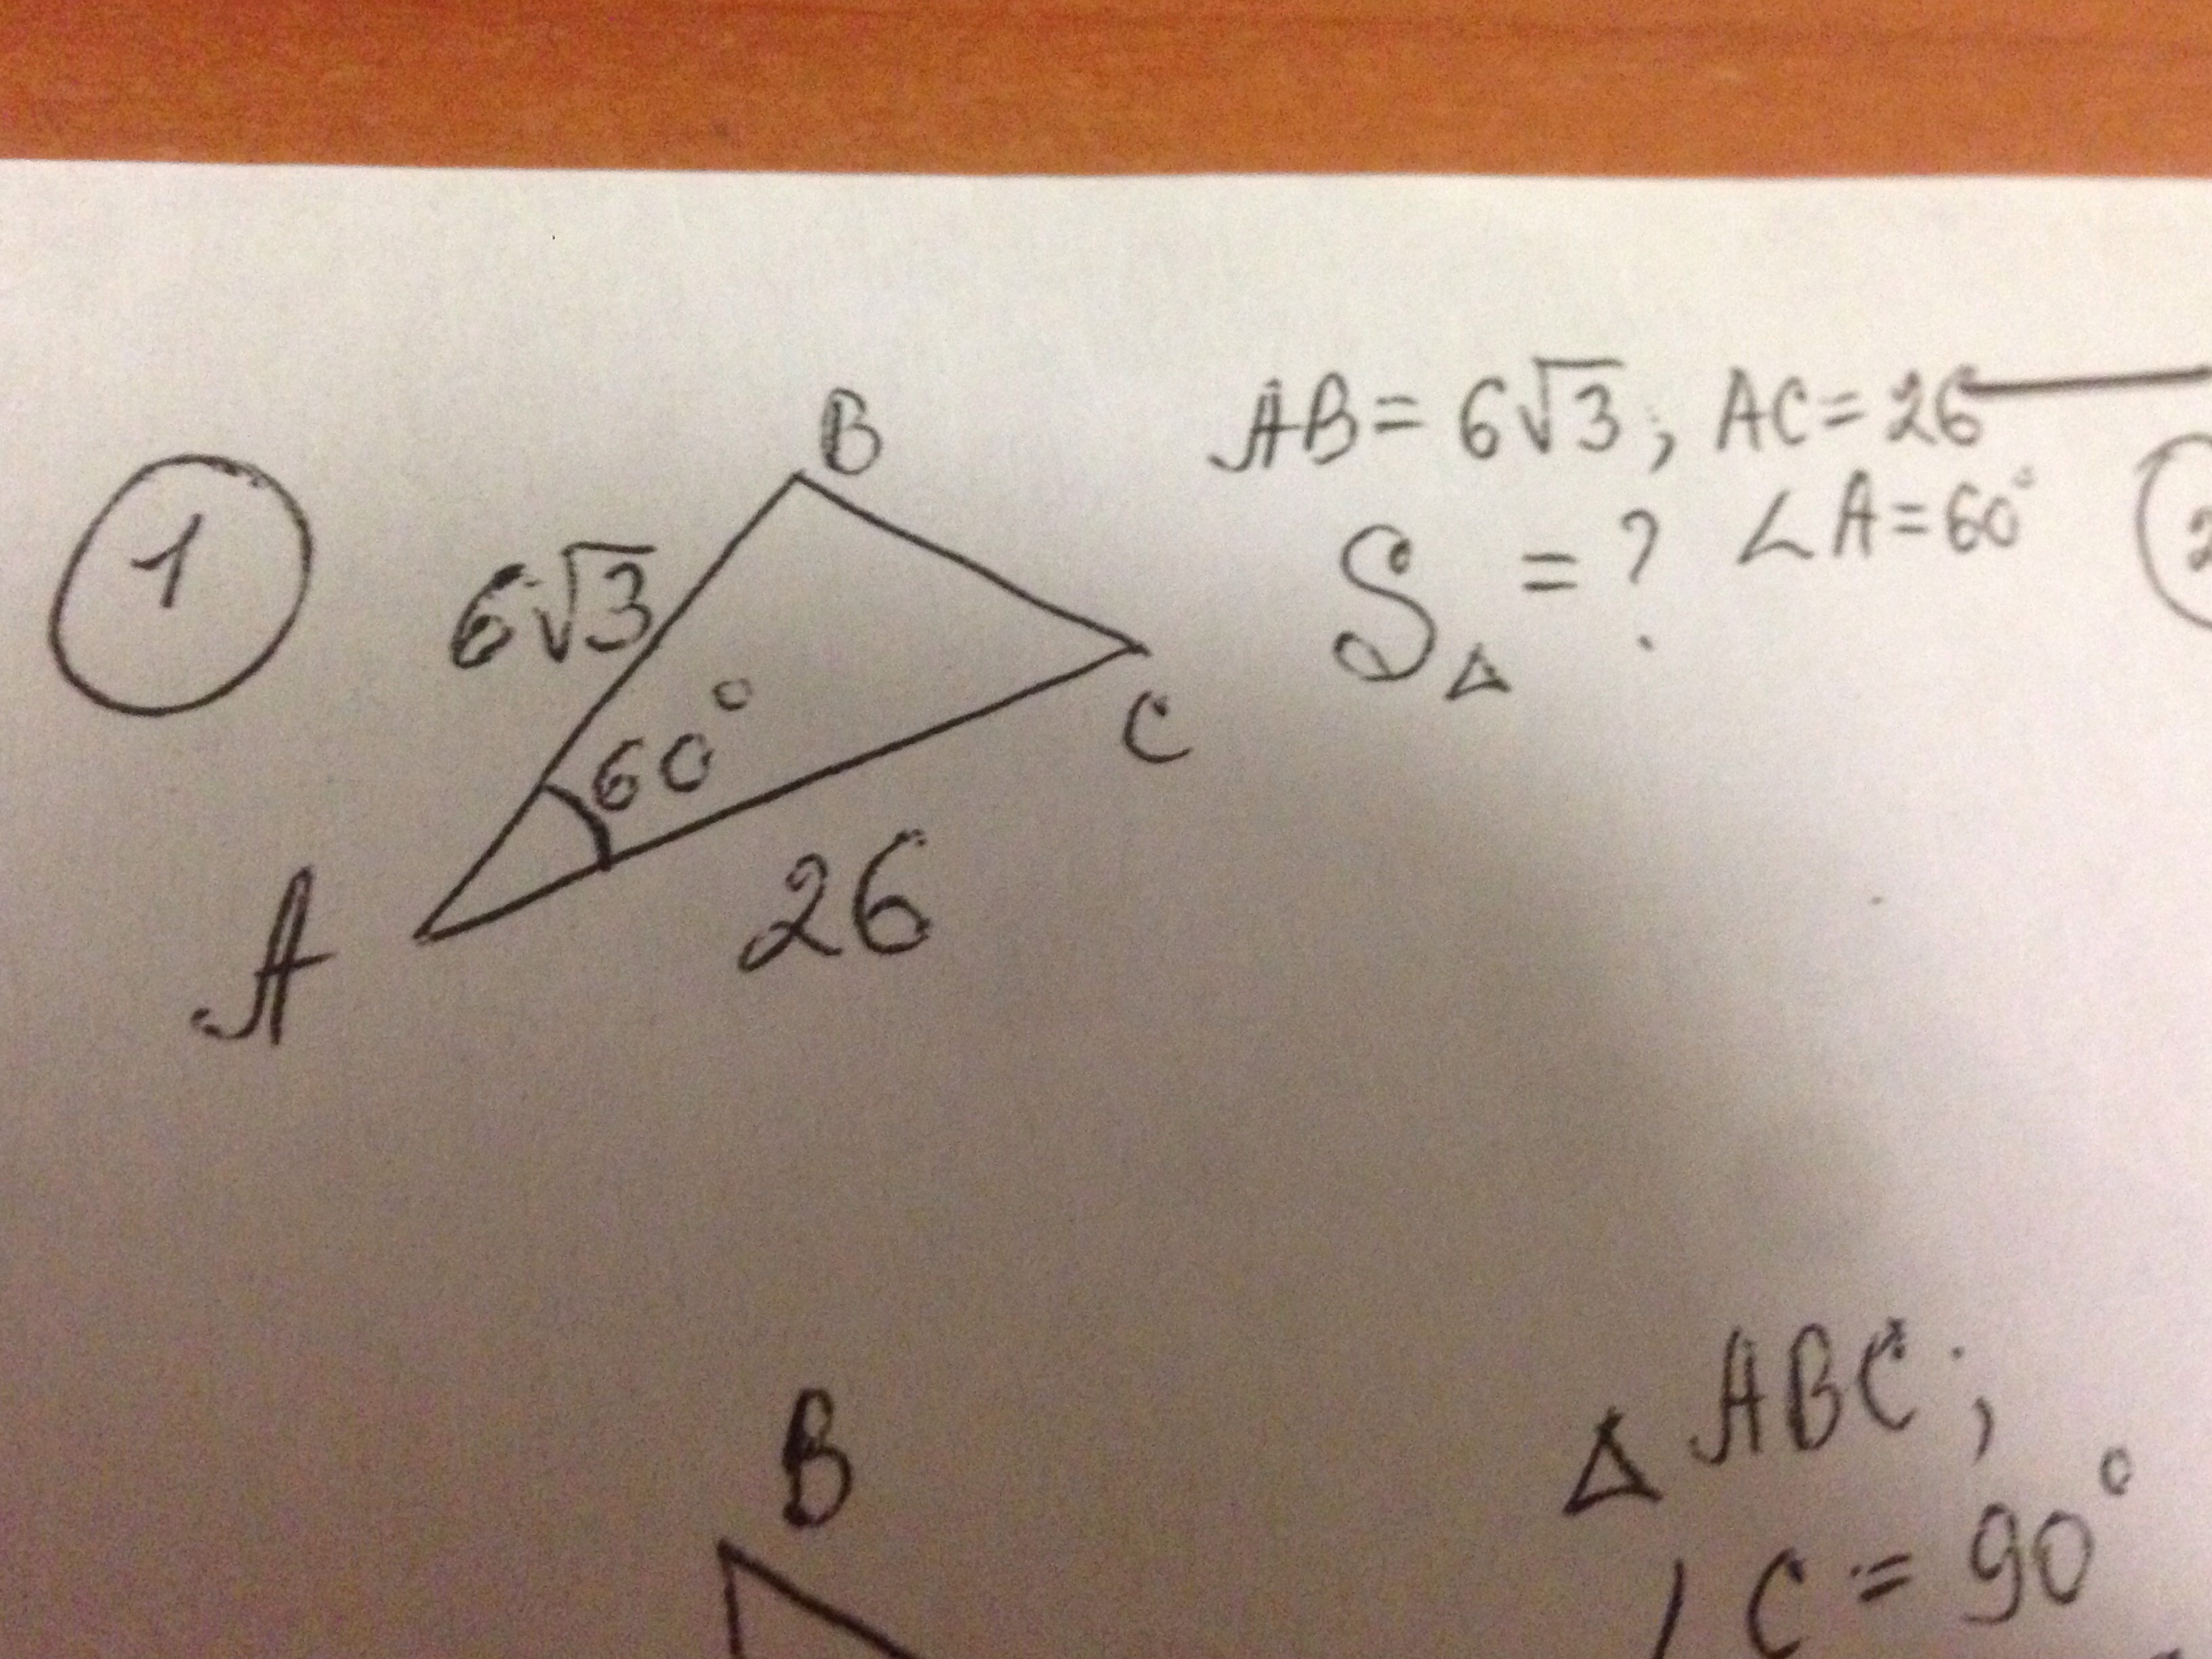 1
B
6√3
60°
A
26
C
AB = 6√3; AC = 26
S△ = ? ∠A = 60°
B
△ ABC;
∠C = 90°